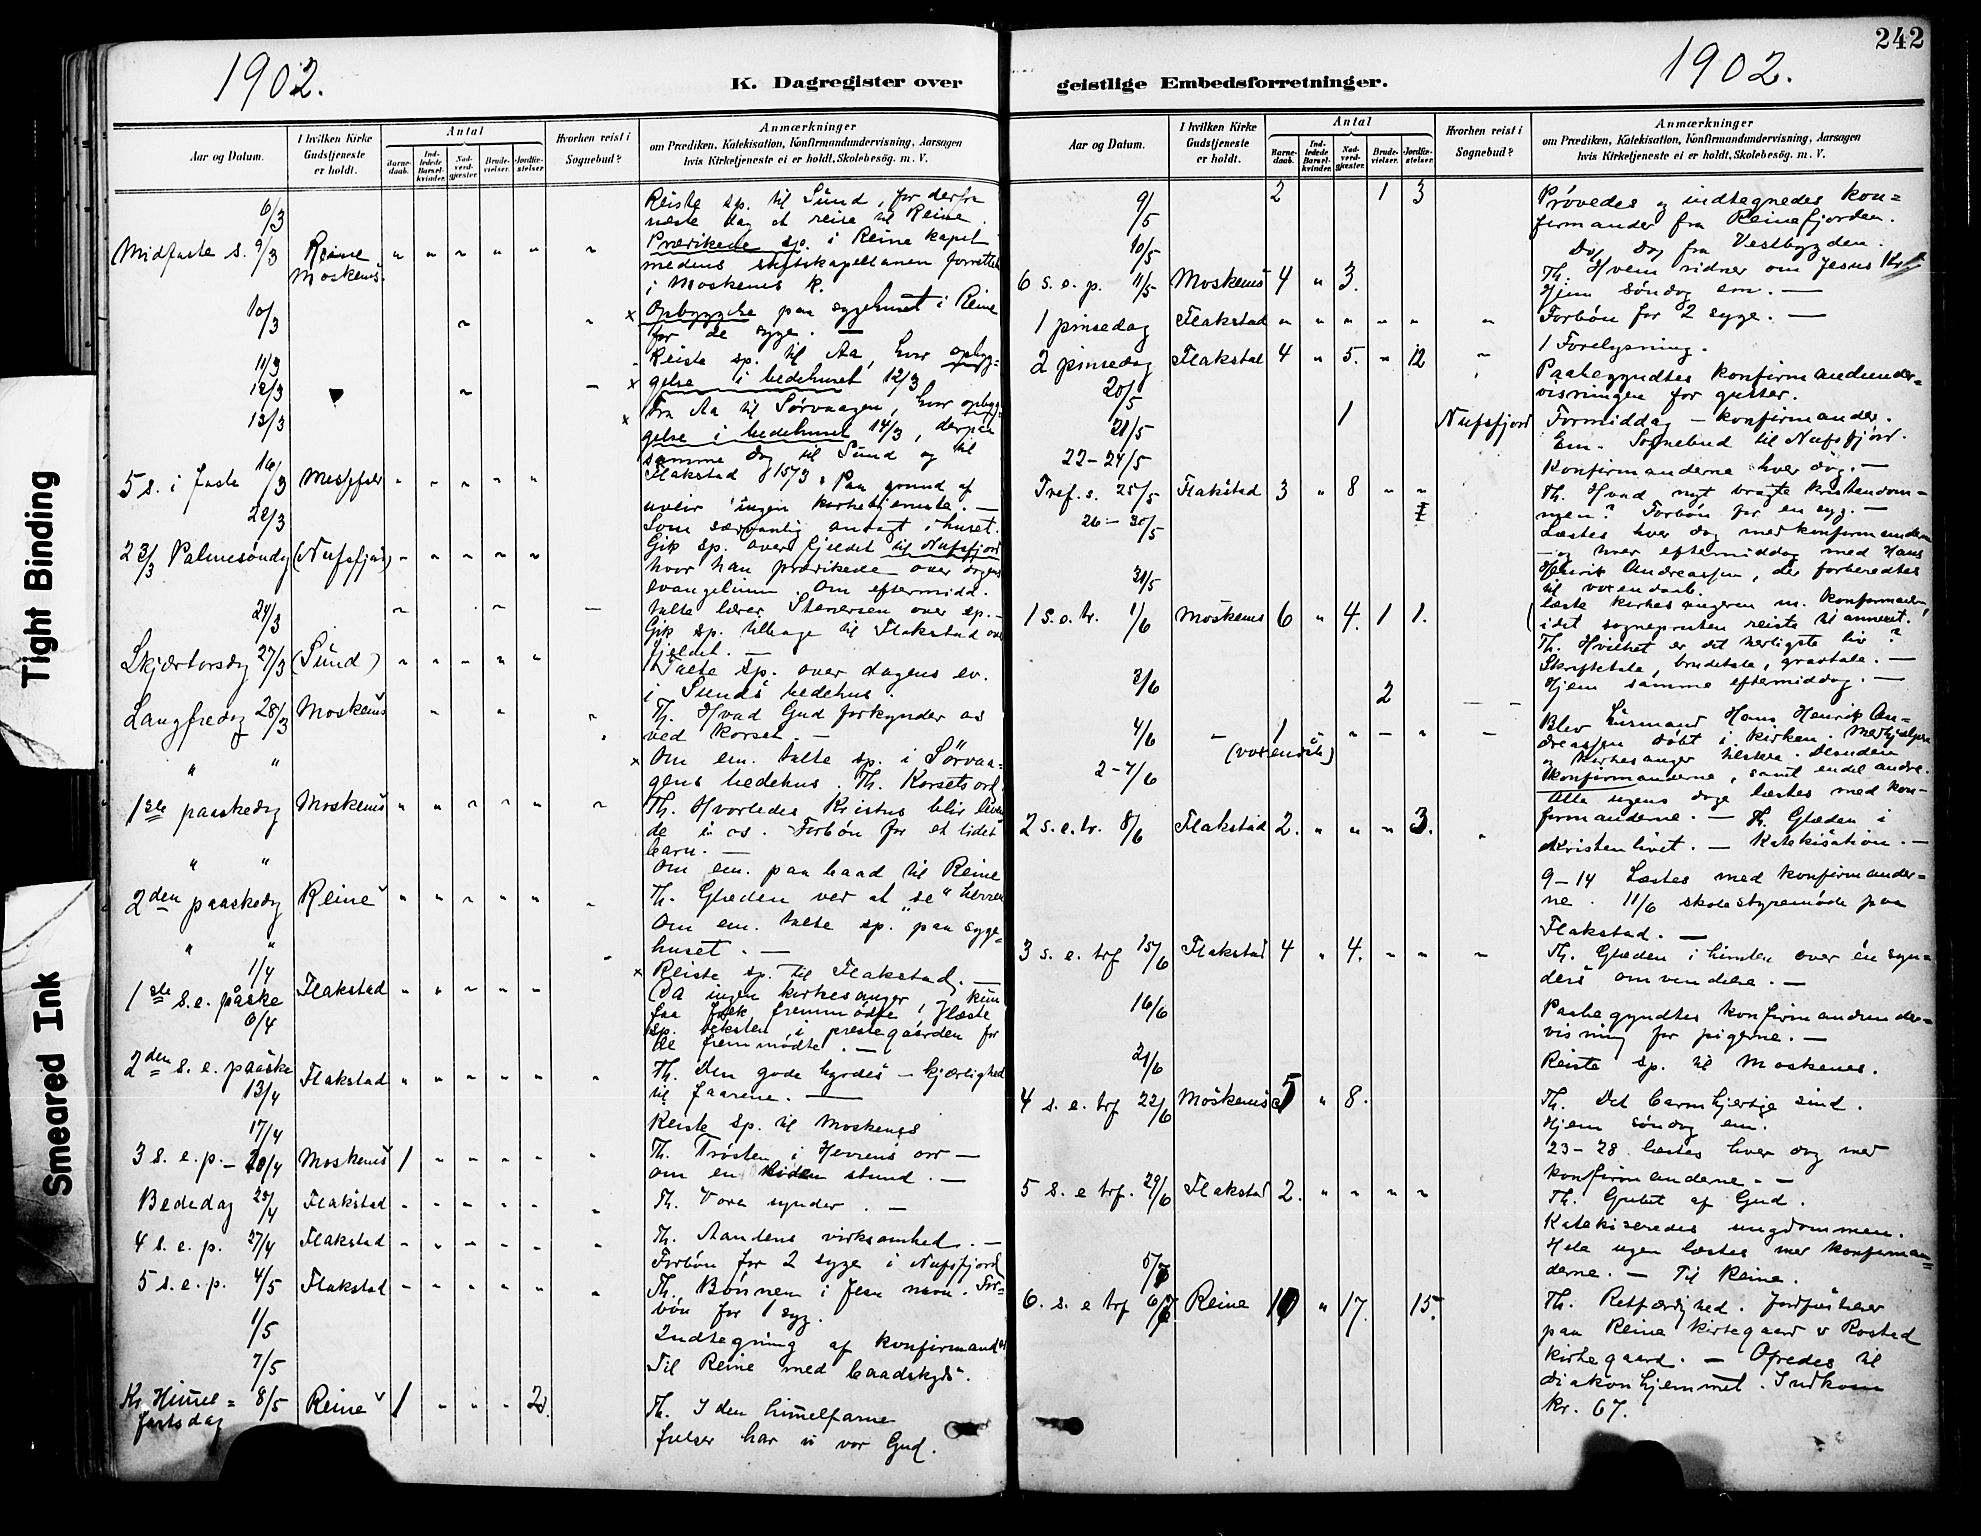 242
1902.
1902.
K. Dagregister over
geistlige Embedsforretninger.
Aar og Datum.
I hvilken Kirke
Gudstjeneste
er holdt.
Antal
Barne-
daab.
Ind-
ledede
Barsel-
kvinder.
Nad-
verd-
gjæster.
Brude-
vielser.
Jordfæ-
stelser.
Hvorhen reist i
Sognebud?
Anmærkninger
om Prædiken, Katekisation, Konfirmandundervisning, Aarsagen
hvis Kirketjeneste ei er holdt, Skolebesög. m. V.
6/3 Reiste sp. til Sund, for derfra
næste dag at reise til Reine.
Midfaste s. 9/3 Reine " " " " " " Prædikede sp. i Reine kapel
Moskenes medens stiftskapellanen forrettede
i Moskenes k.
10/3 " " x Opbyggelse paa sygehuset i Reine
for de syge. —
11/3 Reiste sp. til Aa, hvor opbyg=
12/3 " " x gelse i bedehuset 12/3
13/3 Fra Aa til Sørvaagen, hvor opbyg-
x gelse i bedehuset 14/3, derpaa
samme dag til Sund og til
5 s. i faste 16/3 " " " " " Flakstad 15/3. Paa grund af
uveir ingen kirketjeneste. —
22/3 Som sædvanlig andagt i huset.
23/3 Palmesøndag (Nufsfjord) " " " " " Gik sp. over fjeldet til Nufsfjord
hvor han prædikede over dagens
evangelium. Om eftermidd.
24/3 " " — talte lærer Stenersen over sp. —
Gik sp. tilbage til Flakstad over
fjeldet. —
Skjærtorsdag 27/3 (Sund) " " " " " Talte sp. over dagens ev.
i Sunds bedehus.
Langfredag 28/3 Moskenes " " " Th. Hvad Gud forkynder os
ved korset. —
" " x Om em. talte sp. i Sørvaa=
gens bedehus. Th. Korsets ord
1ste paaskedag Moskenes " " " " " " Th. Hvorledes Kristus blir leven
de i os. Forbøn for et lidet
barn. —
" " Om em. paa baad til Reine
2den paaskedag Reine " " " " " " Th. Glæden ved at "se" Herren
" " Om em. talte sp. paa syge=
huset. —
1/4 x Reiste sp. til Flakstad. —
1ste s. e. påske Flakstad " " " " " (Da ingen kirkesanger, kun
6/4 faa folk fremmødte, læste
sp. teksten i prestegaarden for
de fremmødte. —
2den s. e. paaske Flakstad " " " " " " Th. Den gode hyrdes — kjærlighed
13/4 til faarene. —
17/4 Reiste sp. til Moskenes
3 s. e. p. — 20/4 Moskenes 1 " " " " " Th. Trøsten i Herrens ord —
om en liden stund. —
Bededag 25/4 Flakstad " " " " " " Th. Vore synder. —
4 s. e. p. 27/4 Flakstad " " " " " " Th. Aandens virksomhed. —
Forbøn for 2 syge i Nufsfjord
5 s. e. p. 4/5 Flakstad " " " " " " Th. Bønnen i Jesu navn. For=
bøn for 1 syg.
1/5 Indtegning af konfirmander
7/5 Til Reine med baadskyds.
Kr. Himmel= 8/5 Reine 1 " " " 2 Th. I den himmelfarne
fartsdag frelser har vi vor Gud.
Aar og Datum.
I hvilken Kirke
Gudstjeneste
er holdt.
Antal
Barne-
daab.
Ind-
ledede
Barsel-
kvinder.
Nad-
verd-
gjæster.
Brude-
vielser.
Jordfæ-
stelser.
Hvorhen reist i
Sognebud?
Anmærkninger
om Prædiken, Katekisation, Konfirmandundervisning, Aarsagen
hvis Kirketjeneste ei er holdt, Skolebesög. m. V.
9/5 2 1 3 Prøvedes og indtegnedes kon=
firmander fra Reinefjorden.
10/5 Do, Do fra Vestbygden.
6 s. e. p. 11/5 Moskenes 4 " 3. Th. Hvem vidner om Jesus Kr.
Hjem søndag em. —
1 pinsedag Flakstad " " " " " " Forbøn for 2 syge. —
2 pinsedag Flakstad 4 " 5. " 12 " 1 Forelysning.
20/5 Paabegyndtes konfirmandunder=
visningen for gutter.
21/5 1 Nufsfjord Formiddag — konfirmander.
Em. Sognebud til Nufsfjord.
22-24/5 Konfirmanderne hver dag. —
Tref. s. 25/5 Flakstad 3 " 8 " " Th. Hvad nyt bragte kristendom=
men? Forbøn for en syg. —
26-30/5 Læstes hver dag med konfirmanderne
— og hver eftermiddag med Hans
31/5 Henrik Andreassen, der forberedtes
til voxendaab.
1 s. e. tr. 1/6 Moskenes 6 " 4. 1 1. læste kirkesangeren m. konfirmander,
idet sognepresten reiste til annexet.
Th. Hvilket er det herligste liv?
Skriftetale, brudetale, gravtale. —
3/6 2 Hjem samme eftermiddag. —
4/6 — 1 " " — " — Blev Lirmand Hans Henrik An=
(voxendåb) dreassen døbt i kirken. Medhjælpere
og kirkesanger tilstede. Desuden
2-7/6 konfirmanderne, samt endel andre.
Alle ugens dage læstes med kon=
2 s. e. tr. 8/6 Flakstad 2. " " " 3. " firmanderne. — Th. Glæden i
kristenlivet. — Katekisation. —
9-14 Læstes med konfirmander=
ne. 11/6 skolestyremøde paa
Flakstad. —
3 s. e. trf 15/6 Flakstad 4 " 4. " " " Th. Glæden i himlen over én syn=
ders omvendelse. —
16/6 Paabegyndtes konfirmandunder=
visning for pigerne. —
21/6 Reiste sp. til Moskenes.
4 s. e. trf 22/6 Moskenes 5 " 8. Th. Det barmhjertige sind.
Hjem søndag em.
23-28 læstes hver dag med
konfirmanderne. —
5 s. e trf. 29/6 Flakstad 2. " " " " Th. Grebet af Gud.
Katekiseredes ungdommen.
Hele ugen læstes med konfirman=
5/7 derne. — Til Reine.
6. s. e trf 6/7 Reine 10 " 17. 15. Th. Retfærdighed. Jordfæstelser
paa Reine kirkegaard & Rostad
kirkegaard. — Ofredes til
diakonhjemmet. Indkom
kr. 67.
Tight Binding
Smeared Ink